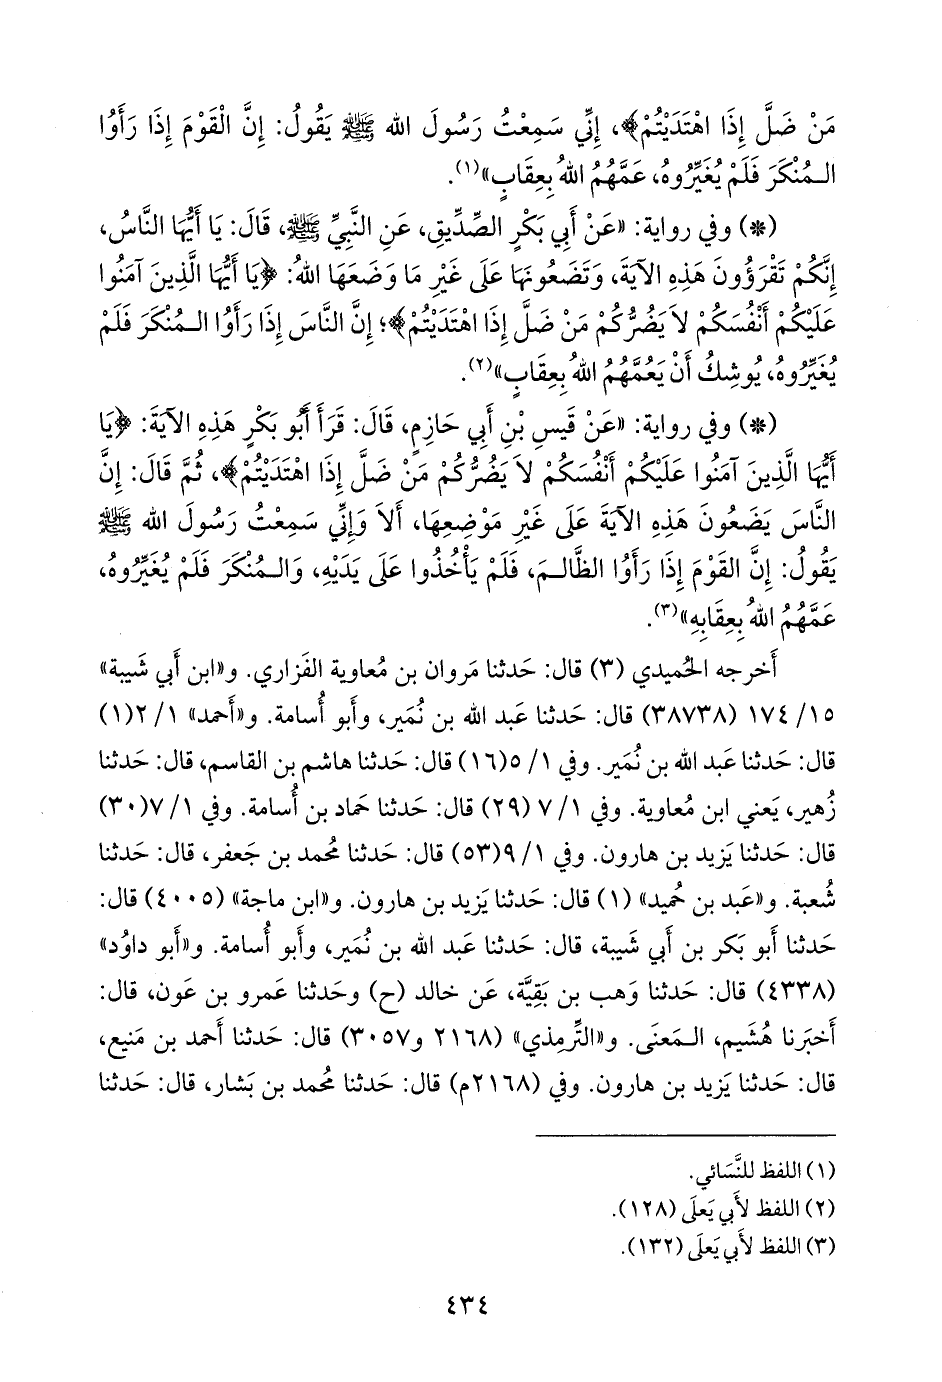 مَنْ ضَلَّ إِذَا اهْتَدَيْتُمْ﴾، إِنِّي سَمِعْتُ رَسُولَ الله ﷺ يَقُولُ: إِنَّ الْقَوْمَ إِذَا رَأَوُا
الـمُنْكَرَ فَلَمْ يُغَيِّرُوهُ، عَمَّهُمُ اللهُ بِعِقَابٍ»(١).
(*) وفي رواية: «عَنْ أَبِي بَكْرٍ الصِّدِّيقِ، عَنِ النَّبِيِّ ﷺ، قَالَ: يَا أَيُّهَا النَّاسُ،
إِنَّكُمْ تَقْرَؤُونَ هَذِهِ الآيَةَ، وَتَضَعُونَهَا عَلَى غَيْرِ مَا وَضَعَهَا اللهُ: ﴿يَا أَيُّهَا الَّذِينَ آمَنُوا
عَلَيْكُمْ أَنْفُسَكُمْ لاَ يَضُرُّكُمْ مَنْ ضَلَّ إِذَا اهْتَدَيْتُمْ﴾؛ إِنَّ النَّاسَ إِذَا رَأَوُا الـمُنْكَرَ فَلَمْ
يُغَيِّرُوهُ، يُوشِكُ أَنْ يَعُمَّهُمُ اللهُ بِعِقَابٍ»(٢).
(*) وفي رواية: «عَنْ قَيْسِ بْنِ أَبِي حَازِمٍ، قَالَ: قَرَأَ أَبُو بَكْرٍ هَذِهِ الآيَةَ: ﴿يَا
أَيُّهَا الَّذِينَ آمَنُوا عَلَيْكُمْ أَنْفُسَكُمْ لاَ يَضُرُّكُمْ مَنْ ضَلَّ إِذَا اهْتَدَيْتُمْ﴾، ثُمَّ قَالَ: إِنَّ
النَّاسَ يَضَعُونَ هَذِهِ الآيَةَ عَلَى غَيْرِ مَوْضِعِهَا، أَلاَ وَإِنِّي سَمِعْتُ رَسُولَ الله ﷺ
يَقُولُ: إِنَّ القَوْمَ إِذَا رَأَوُا الظَّالِـمَ، فَلَمْ يَأْخُذُوا عَلَى يَدَيْهِ، وَالـمُنْكَرَ فَلَمْ يُغَيِّرُوهُ،
عَمَّهُمُ اللهُ بِعِقَابِهِ»(٣).
أَخرجه الحُميدي (٣) قال: حَدثنا مَروان بن مُعاوية الفَزاري. و«ابن أَبي شَيبة»
١٥/ ١٧٤ (٣٨٧٣٨) قال: حَدثنا عَبد الله بن نُمَير، وأَبو أُسامة. و«أَحمد» ١/ ٢(١)
قال: حَدثنا عَبد الله بن نُمَير. وفي ١/ ٥(١٦) قال: حَدثنا هاشم بن القاسم، قال: حَدثنا
زُهير، يَعني ابن مُعاوية. وفي ١/ ٧ (٢٩) قال: حَدثنا حَماد بن أُسامة. وفي ١/ ٧(٣٠)
قال: حَدثنا يَزيد بن هارون. وفي ١/ ٩(٥٣) قال: حَدثنا مُحمد بن جَعفر، قال: حَدثنا
شُعبة. و«عَبد بن حُميد» (١) قال: حَدثنا يَزيد بن هارون. و«ابن ماجة» (٤٠٠٥) قال:
حَدثنا أَبو بَكر بن أَبي شَيبة، قال: حَدثنا عَبد الله بن نُمَير، وأَبو أُسامة. و«أَبو داوُد»
(٤٣٣٨) قال: حَدثنا وَهب بن بَقِيَّة، عَن خالد (ح) وحَدثنا عَمرو بن عَون، قال:
أَخبَرنا هُشَيم، الـمَعنَى. و«التِّرمِذي» (٢١٦٨ و٣٠٥٧) قال: حَدثنا أَحمد بن مَنيع،
قال: حَدثنا يَزيد بن هارون. وفي (٢١٦٨م) قال: حَدثنا مُحمد بن بَشار، قال: حَدثنا
(١) اللفظ للنَّسَائي.
(٢) اللفظ لأَبي يَعلَى (١٢٨).
(٣) اللفظ لأَبي يَعلَى (١٣٢).
٤٣٤